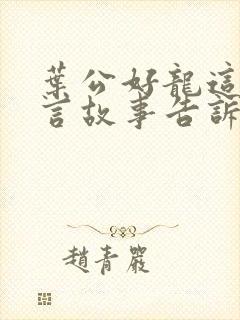 葉公好龍這
言故事告訴
趙青嚴